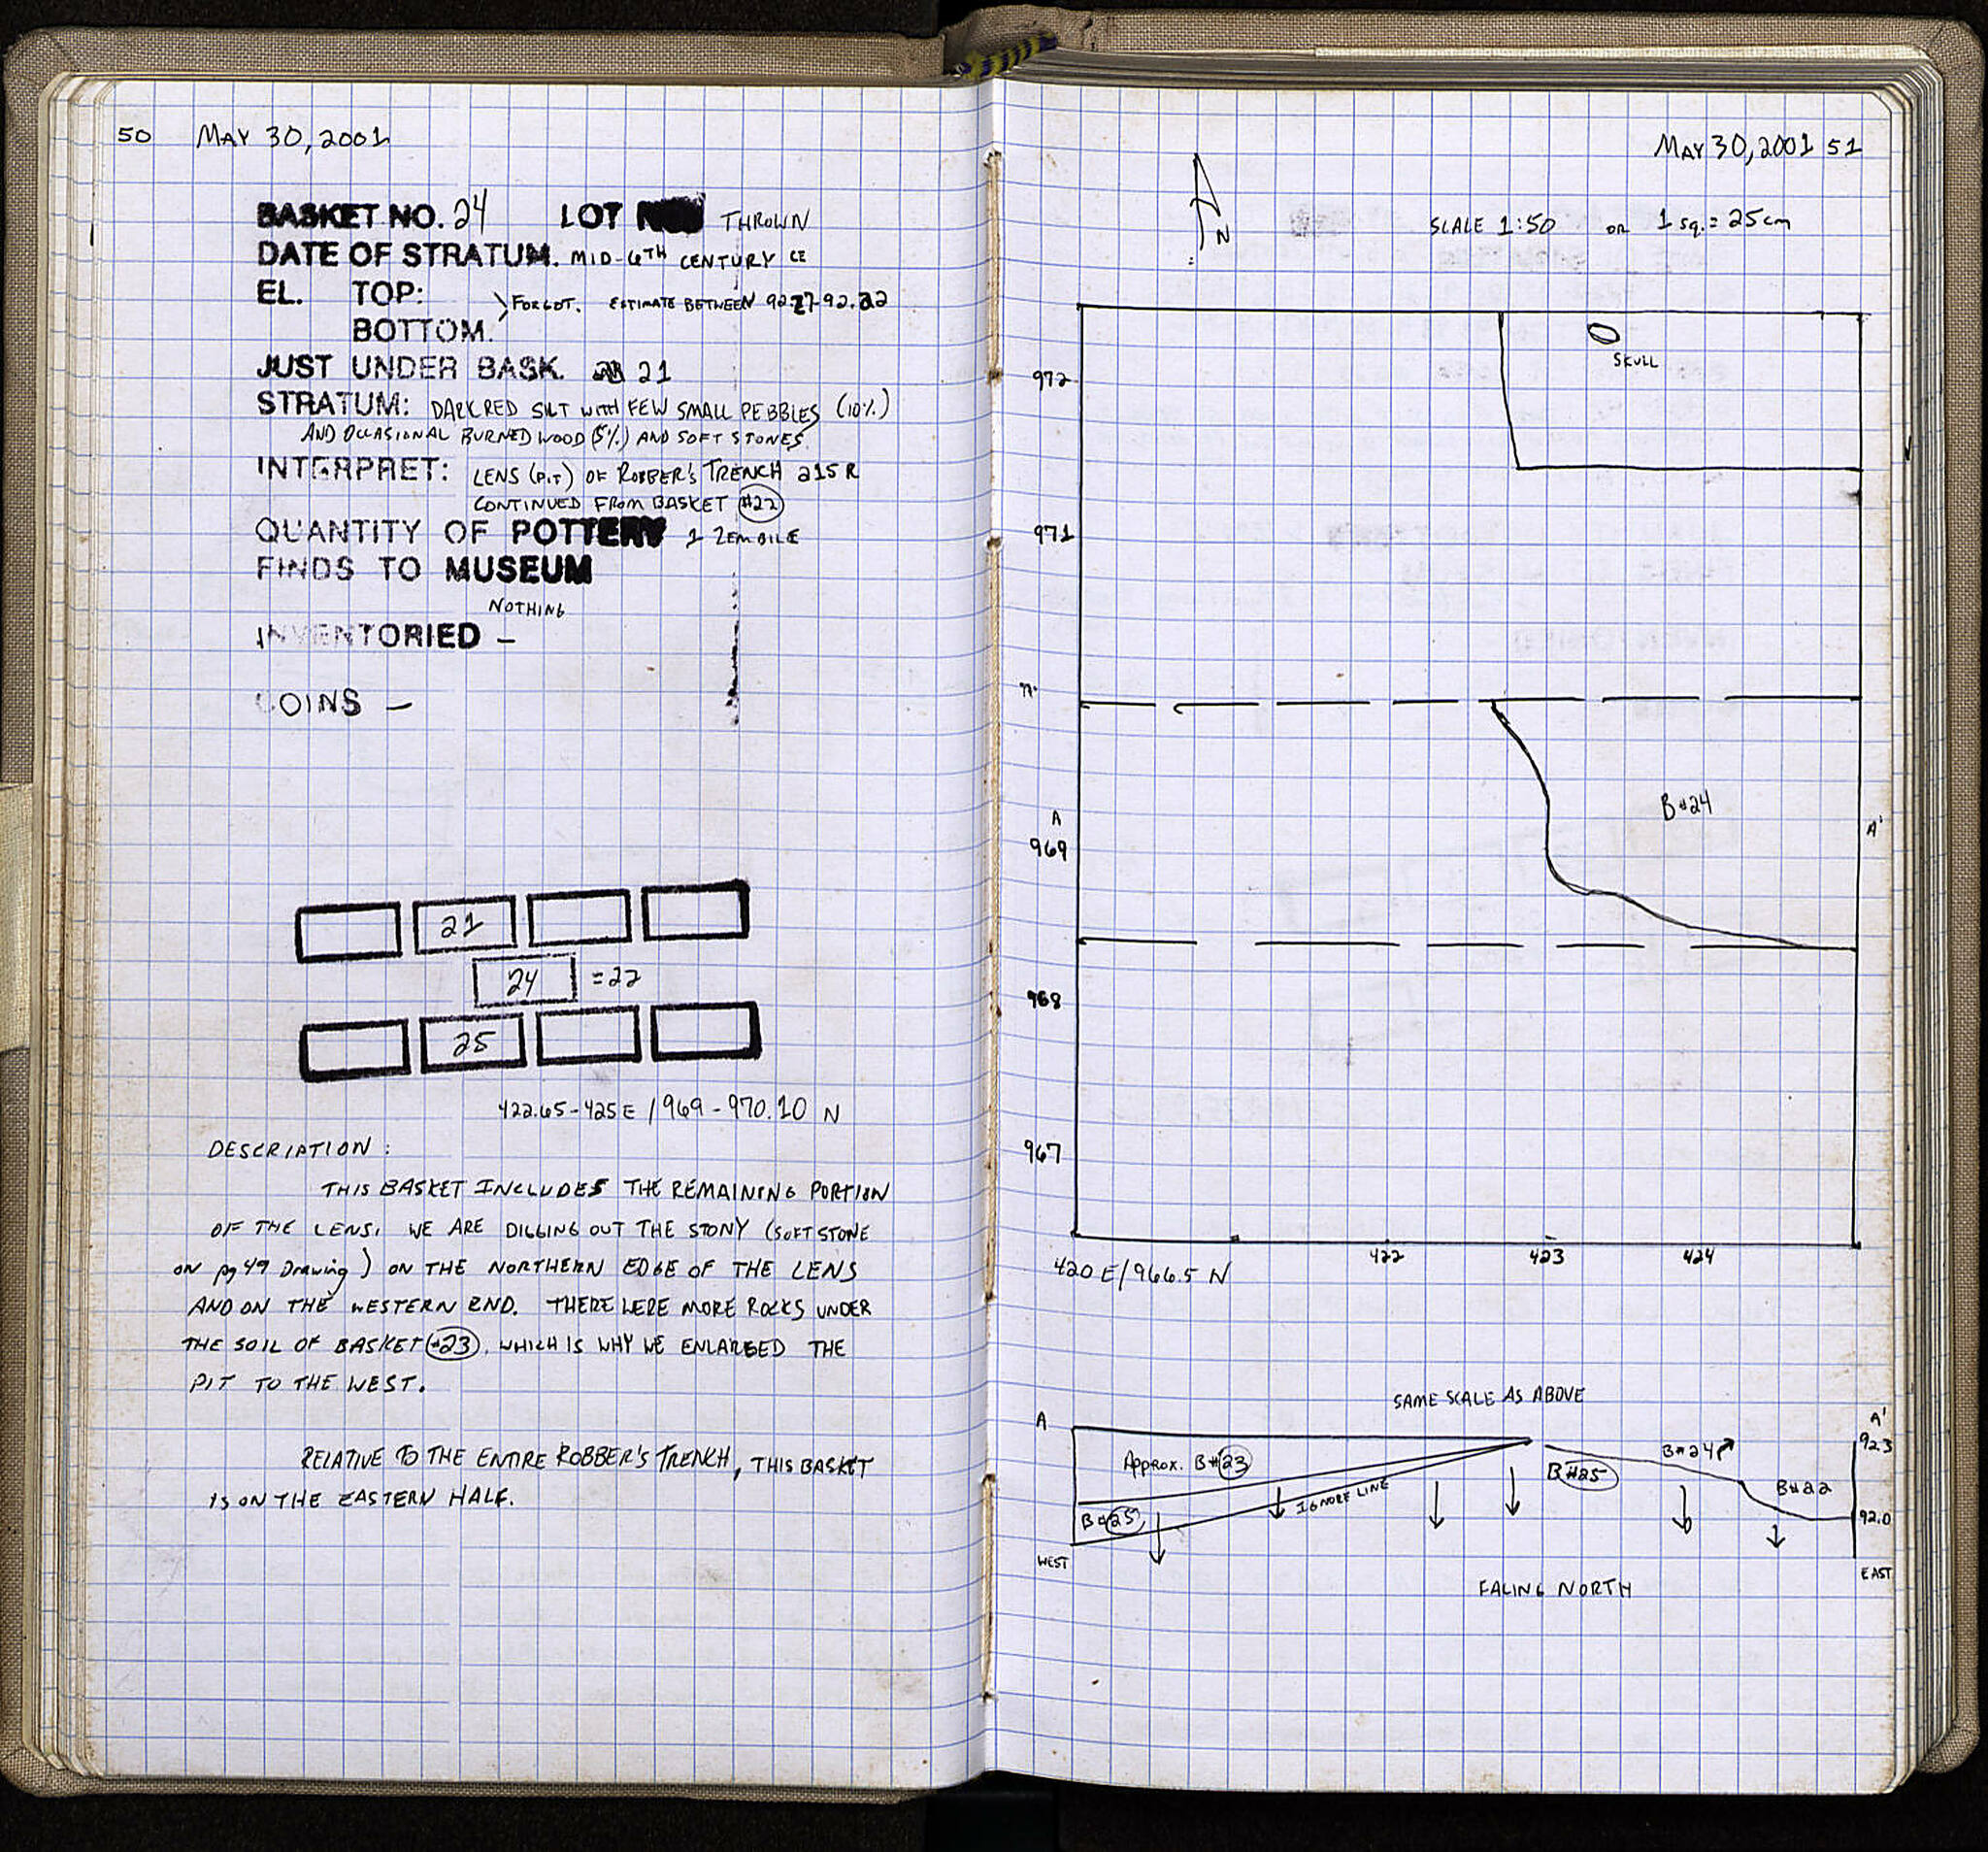 50 MAY 30, 2001
BASKET NO. 24 LOT THROWN
DATE OF STRATUM. MID-6TH CENTURY CE
EL. TOP:
FORGOT. ESTIMATE BETWEEN 92.27-92.22
BOTTOM.
JUST UNDER BASK. 21
STRATUM: DARK RED SILT WITH FEW SMALL PEBBLES (10%)
AND OCCASIONAL BURNED WOOD (5%) AND SOFT STONES.
INTERPRET: LENS (PIT) OF ROBBER'S TRENCH 215 R
CONTINUED FROM BASKET #22
QUANTITY OF POTTERY 1 ZEMBILE
FINDS TO MUSEUM
NOTHING
INVENTORIED –
COINS –
21
24 =22
25
422.65-425 E / 969-970.10 N
DESCRIPTION:
THIS BASKET INCLUDES THE REMAINING PORTION
OF THE LENS. WE ARE DIGGING OUT THE STONY (SOFT STONE
ON pg 49 Drawing) ON THE NORTHERN EDGE OF THE LENS
AND ON THE WESTERN END. THERE WERE MORE ROCKS UNDER
THE SOIL OF BASKET #23, WHICH IS WHY WE ENLARGED THE
PIT TO THE WEST.
RELATIVE TO THE ENTIRE ROBBER'S TRENCH, THIS BASKET
IS ON THE EASTERN HALF.
MAY 30, 2001 51
N
SCALE 1:50 OR 1 SQ. = 25cm
SKULL
972
971
B#24
A
A'
969
968
967
422 423 424
420 E/966.5 N
SAME SCALE AS ABOVE
A
A'
92.3
Approx. B#23
B#24
B#25
IGNORE LINE
B#22
B#25
92.0
WEST
EAST
FACING NORTH